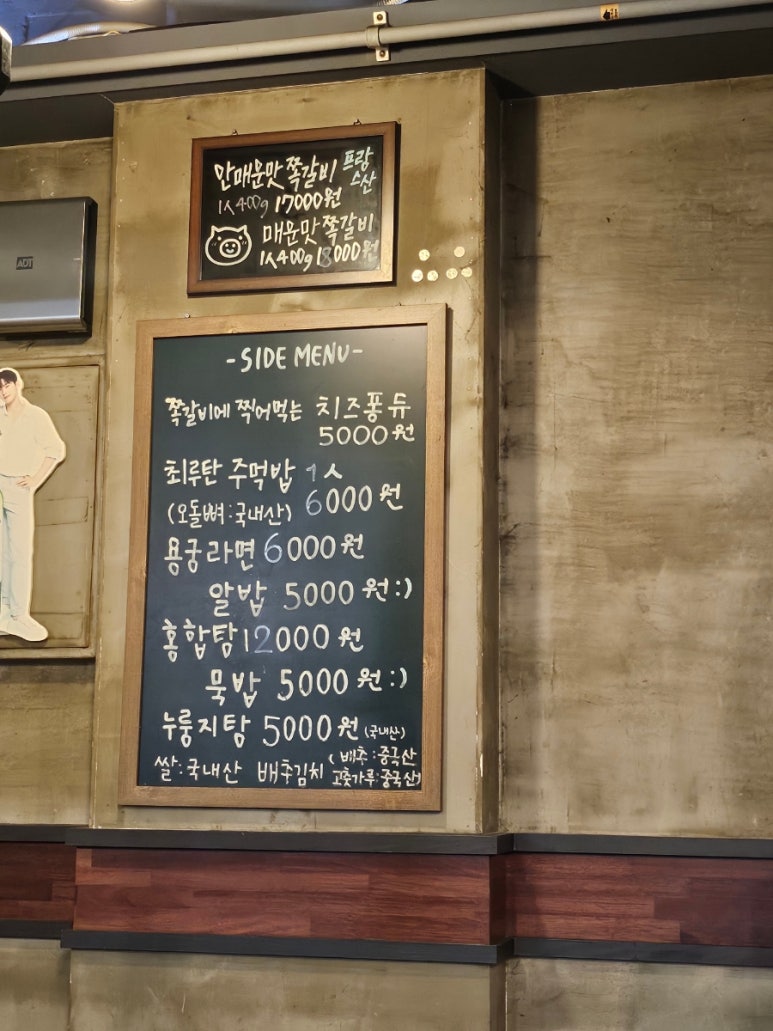 안매운맛 쪽갈비 프랑스산
1人400g 17000원
매운맛 쪽갈비
1人400g 18000원
ADT
-SIDE MENU-
쪽갈비에 찍어먹는 치즈퐁듀
5000원
최루탄 주먹밥 1人
(오돌뼈:국내산) 6000원
용궁라면 6000원
알밥 5000원:)
홍합탕 12000원
묵밥 5000원:)
누룽지탕 5000원 (국내산)
쌀:국내산 배추김치 (배추:중국산
고춧가루:중국산)